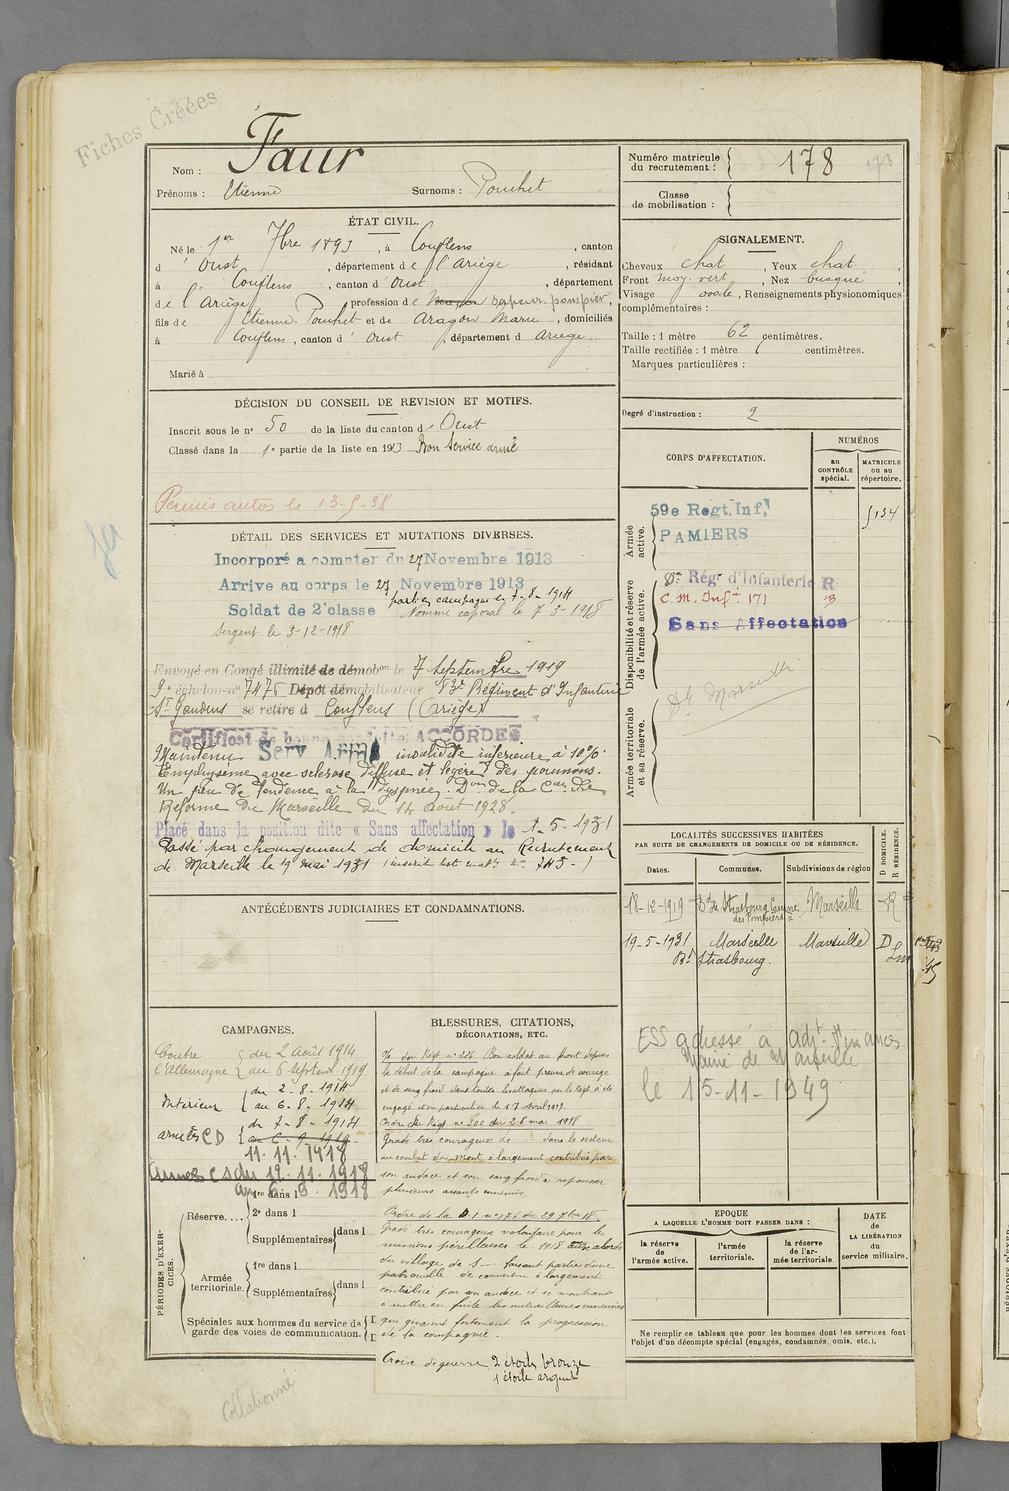 Fiches Créées
Nom : Faur
Prénoms : Etienne Surnoms : Pouchet
Numéro matricule du recrutement : 178
Classe de mobilisation :
ÉTAT CIVIL.
Né le 1er 7bre 1893, à Couflens, canton
d' Oust, département de l'Ariège, résidant
à Couflens, canton d' Oust, département
de l'Ariège, profession de maçon sapeur-pompier,
fils de Etienne Pouchet et de Aragon Marie, domiciliés
à Couflens, canton d' Oust, département d Ariège.
Marié à
SIGNALEMENT.
Cheveux chat, Yeux chat.,
Front moy. vert, Nez busqué,
Visage ovale, Renseignements physionomiques
complémentaires :
Taille : 1 mètre 62 centimètres.
Taille rectifiée : 1 mètre centimètres.
Marques particulières :
Degré d'instruction : 2
DÉCISION DU CONSEIL DE REVISION ET MOTIFS.
Inscrit sous le n° 50 de la liste du canton d' Oust
Classé dans la 1e partie de la liste en 1913 Bon Service armé
Permis autos le 13-5-38
DÉTAIL DES SERVICES ET MUTATIONS DIVERSES.
Incorporé a compter du 27 Novembre 1913
Arrive au corps le 27 Novembre 1913
parti en campagne le 7-8-1914
Soldat de 2e classe Nommé caporal le 7-3-1918
Sergent le 3-12-1918
Envoyé en Congé illimité de démobon le 7 Septembre 1919
9e échelon n° 7475 Dépôt démobilisateur 83e Régiment d'Infanterie
St Gaudens se retire à Couflens (Ariège)
Certificat de bonne conduite ACCORDÉ
Maintenu Serv. Armé invalidité inférieure à 10%.
Emphysème avec sclérose diffuse et légère des poumons.
Un peu de tendance à la dyspnée. Don de la Con de
Réforme de Marseille du 14 Août 1928.
Placé dans la position dite « Sans affectation » le 1-5-1931
Passé par changement de domicile au Recrutement
de Marseille le 19 mai 1931
CORPS D'AFFECTATION.
NUMÉROS
au CONTRÔLE spécial.
MATRICULE ou au répertoire.
Armée active.
59e Regt. Inf.
PAMIERS
Disponibilité et réserve de l'armée active.
Rég. d'Infanterie R
C. M. Infie 171
Sans Affectation
Armée territoriale et sa réserve.
Marseille
LOCALITÉS SUCCESSIVES HABITÉES
PAR SUITE DE CHANGEMENTS DE DOMICILE OU DE RÉSIDENCE.
Dates. Communes. Subdivisions de région
D DOMICILE. R RÉSIDENCE.
18-12-1919 Bd de Strasbourg Caserne des Pompiers à Marseille R
19-5-1931 Marseille Marseille D
Bd Strasbourg.
ESS adressé à
Mairie de Marseille
le 15-11-1949
ANTÉCÉDENTS JUDICIAIRES ET CONDAMNATIONS.
CAMPAGNES.
Contre l'Allemagne du 2 août 1914
au 6 Septemb 1919
Intérieur du 2-8-1914
au 6-8-1914
armées CD du 7-8-1914
au 6-9-1919
11.11.1918
Armées CS du 12.11.1918
PÉRIODES D'EXERCICES.
Réserve....
1re dans l
2e dans l
Supplémentaires dans l
Armée territoriale.
1re dans l
Supplémentaires dans l
Spéciales aux hommes du service de
garde des voies de communication.
BLESSURES, CITATIONS,
DÉCORATIONS, ETC.
Bon soldat au front depuis
le début de la campagne a fait preuve de courage
et de sang froid dans toutes les attaques où le Régt a été
engagé et en particulier le 17 avril 1917.
Ordre du Régt n° 300 du 28 mai 1918
Gradé très courageux
au combat du Mont a largement contribué par
son audace et son sang froid à repousser
plusieurs assauts ennemis
Ordre de la D.I. n° 176 du 29 7bre 18.
Gradé très courageux volontaire pour les
missions périlleuses le 1918
du village de S--- faisant partie d'une
patrouille de couverture a largement
contribué par son audace et se montrant
à mettre en fuite les mitrailleuses ennemies
qui gênaient fortement la progression
de la compagnie.
Croix de guerre 2 étoiles bronze
1 étoile argent
EPOQUE
A LAQUELLE L'HOMME DOIT PASSER DANS :
la réserve de l'armée active.
l'armée territoriale.
la réserve de l'armée territoriale.
DATE de LA LIBÉRATION du service militaire.
Ne remplir ce tableau que pour les hommes dont les services font
l'objet d'un décompte spécial (engagés, condamnés, omis, etc.).
Collationné